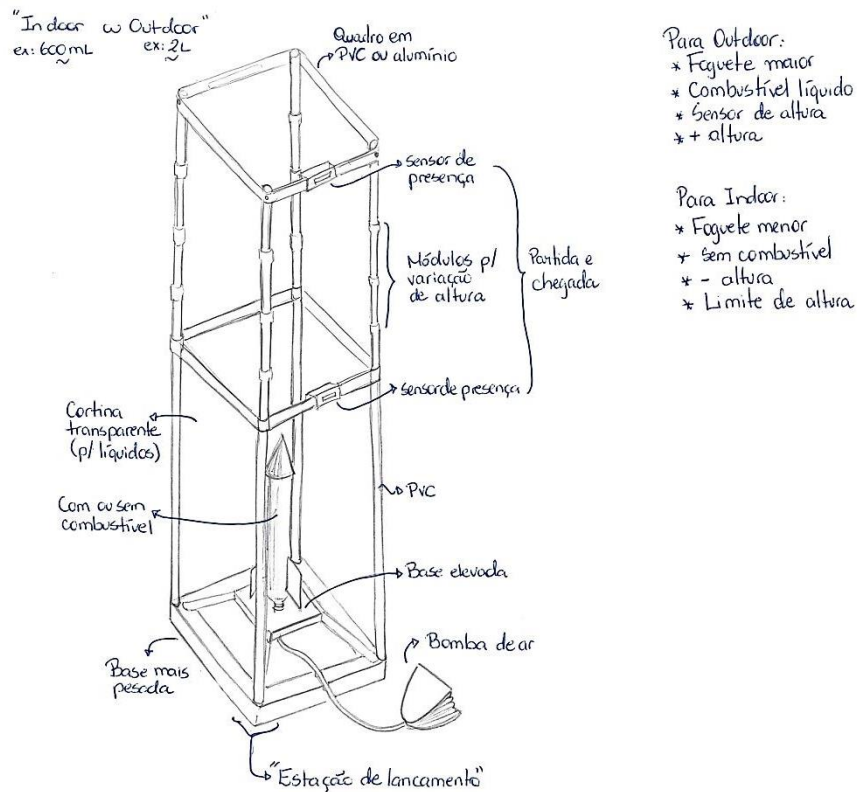 "Indoor ω Outdoor"
ex: 600mL ex: 2L
Quadro em
PVC ou alumínio
sensor de
presença
Módulos p/
variação
de altura
Partida e
chegada
sensor de presença
Cortina
transparente
(p/ líquidos)
Com ou sem
combustível
PVC
Base elevada
Bomba de ar
Base mais
pesada
"Estação de lancamento"
Para Outdoor:
* Foguete maior
* Combustível líquido
* Sensor de altura
* + altura
Para Indoor:
* Foguete menor
* Sem combustível
* - altura
* Limite de altura